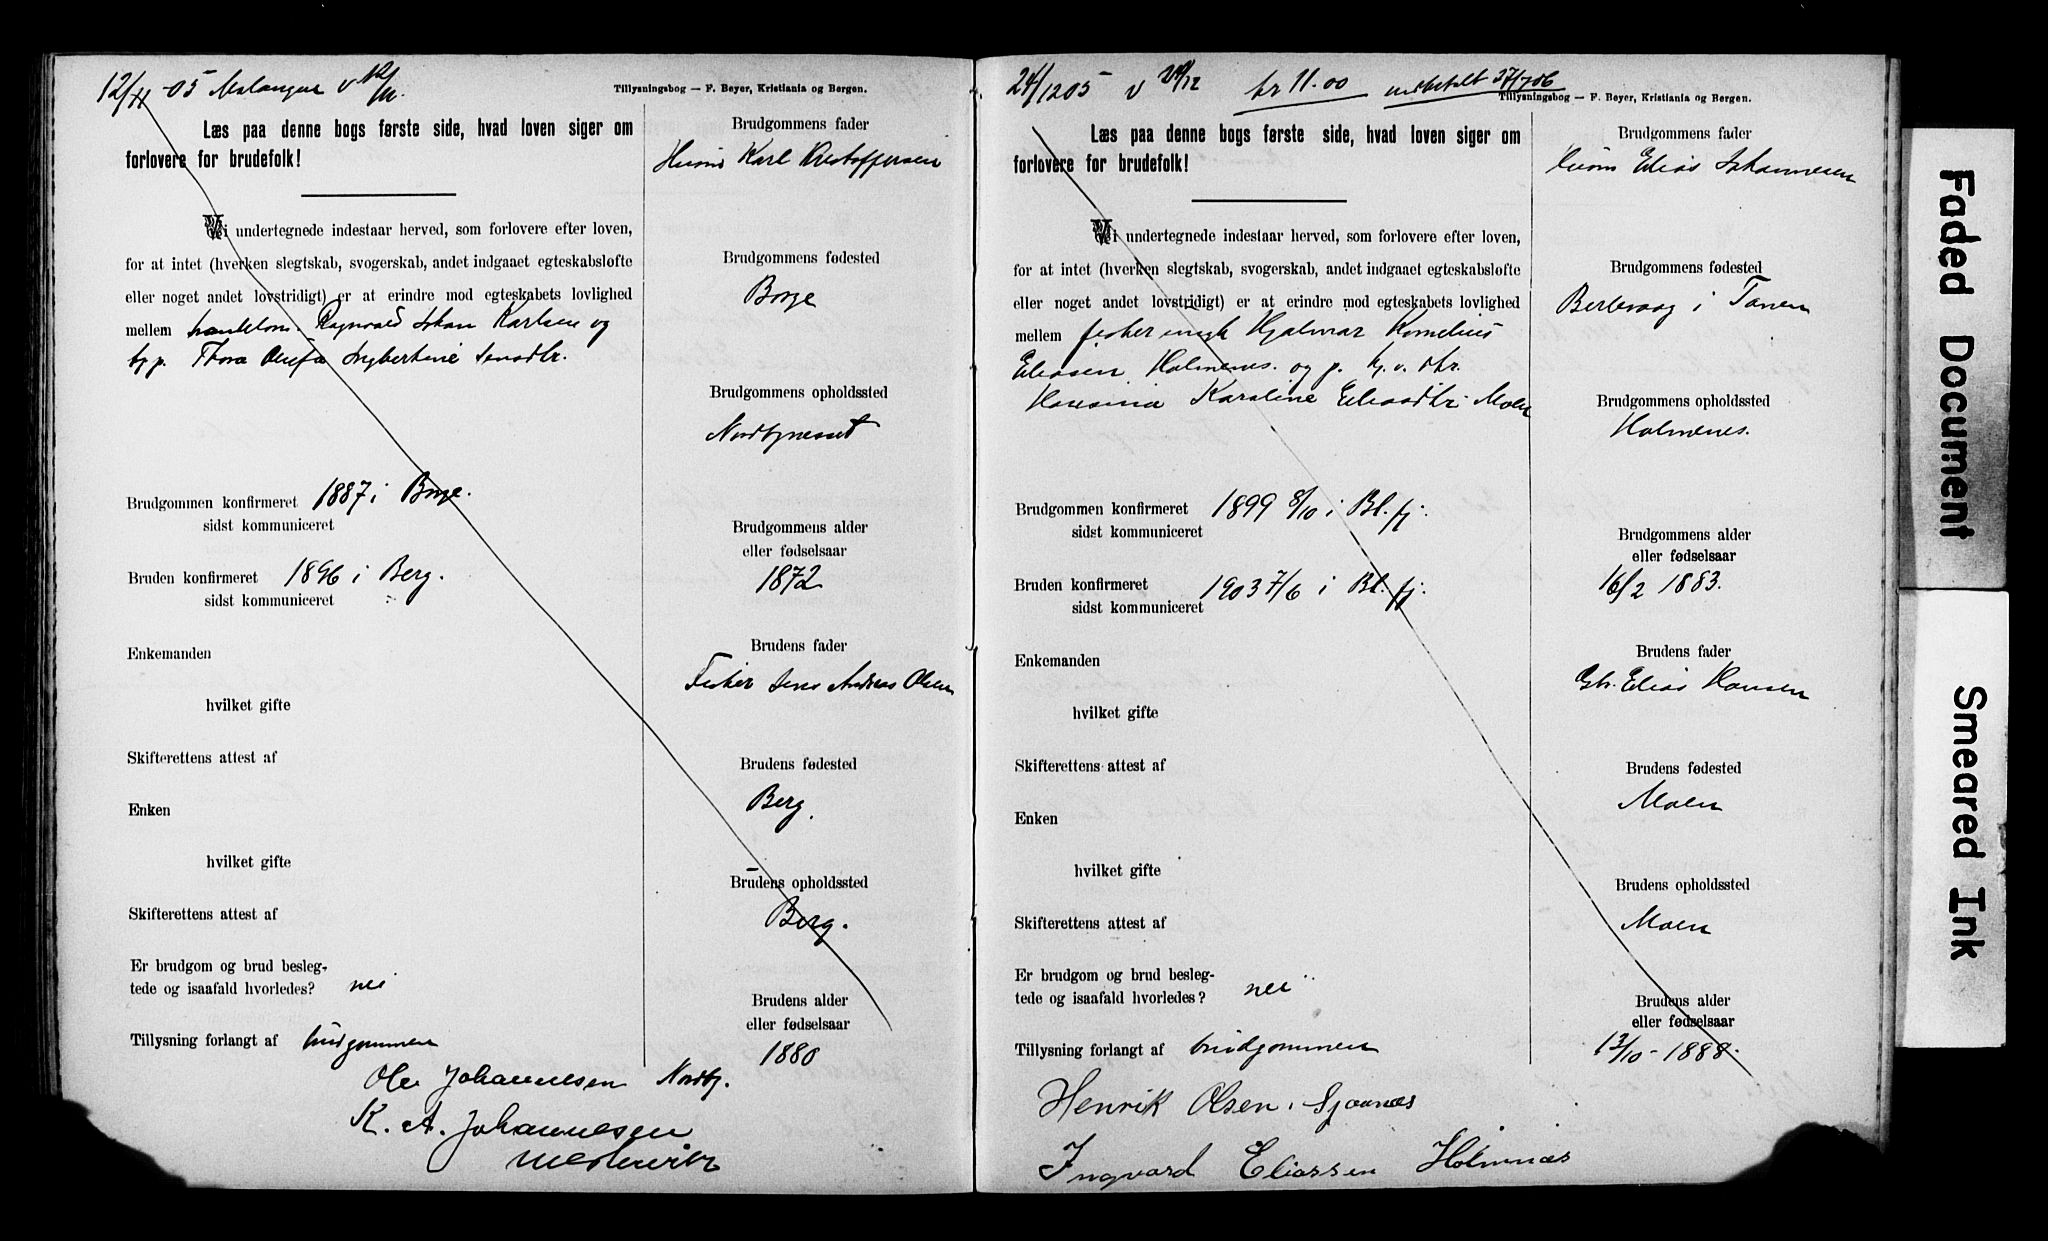 12/11 05 Malangen v 12/11.
Tillysningsbog — F. Beyer, Kristiania og Bergen.
Læs paa denne bogs første side, hvad loven siger om
forlovere for brudefolk!
Vi undertegnede indestaar herved, som forlovere efter loven,
for at intet (hverken slegtskab, svogerskab, andet indgaaet egteskabsløfte
eller noget andet lovstridigt) er at erindre mod egteskabets lovlighed
mellem Ragnvald Johan Karlsen og
Thora Olufa Ingbertine
Brudgommen konfirmeret 1887 i Borge.
sidst kommuniceret
Bruden konfirmeret 1896 i Berg.
sidst kommuniceret
Enkemanden
hvilket gifte
Skifterettens attest af
Enken
hvilket gifte
Skifterettens attest af
Er brudgom og brud besleg-
tede og isaafald hvorledes? nei
Tillysning forlangt af brudgommen
Brudgommens fader
Karl Kristoffersen
Brudgommens fødested
Borge
Brudgommens opholdssted
Nordbynesset
Brudgommens alder
eller fødselsaar
1872
Brudens fader
Fisker Jens Andreas Olsen
Brudens fødested
Berg.
Brudens opholdssted
Berg.
Brudens alder
eller fødselsaar
1880
Ole Johannesen Nordby.
K. A. Johannesen
24/12 05 v 24/12 kr 11.00 indbetalt
Tillysningsbog — F. Beyer, Kristiania og Bergen.
Læs paa denne bogs første side, hvad loven siger om
forlovere for brudefolk!
Vi undertegnede indestaar herved, som forlovere efter loven,
for at intet (hverken slegtskab, svogerskab, andet indgaaet egteskabsløfte
eller noget andet lovstridigt) er at erindre mod egteskabets lovlighed
mellem fisker ungk Hjalmar Kornelius
Eliasen Holmenes. og p. dtr.
Karoline Moen
Brudgommen konfirmeret 1899 8/10 i Bl. fj.
sidst kommuniceret
Bruden konfirmeret 1903 7/6 i Bl. fj.
sidst kommuniceret
Enkemanden
hvilket gifte
Skifterettens attest af
Enken
hvilket gifte
Skifterettens attest af
Er brudgom og brud besleg-
tede og isaafald hvorledes? nei
Tillysning forlangt af brudgommen
Brudgommens fader
Elias Johannesen
Brudgommens fødested
Berlevaag i Tanen
Brudgommens opholdssted
Holmenes.
Brudgommens alder
eller fødselsaar
16/2 1883.
Brudens fader
Gbr. Elias Hansen
Brudens fødested
Moen
Brudens opholdssted
Moen
Brudens alder
eller fødselsaar
13/10 - 1888.
Henrik Olsen, Sjaanæs
Ingvard Eliassen Holmnæs
Faded Document
Smeared Ink